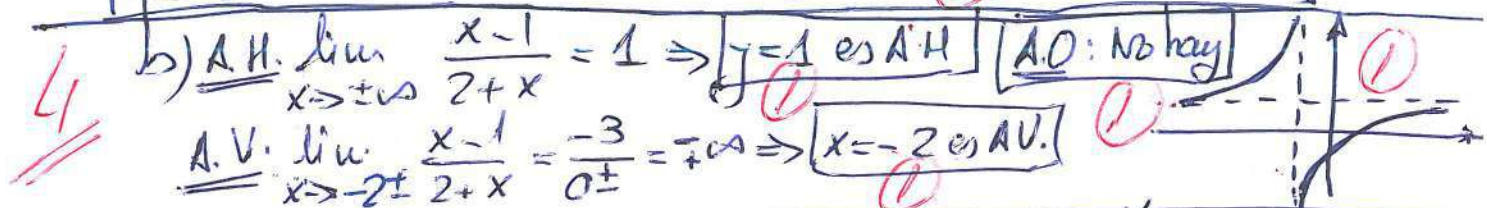 b) A.H. lim x→±∞ (x-1)/(2+x) = 1 ⇒ y=1 es A.H A.O: No hay
4 1 1 1
A.V. lim x→-2± (x-1)/(2+x) = -3/0± = ∓∞ ⇒ x=-2 es AV.
1